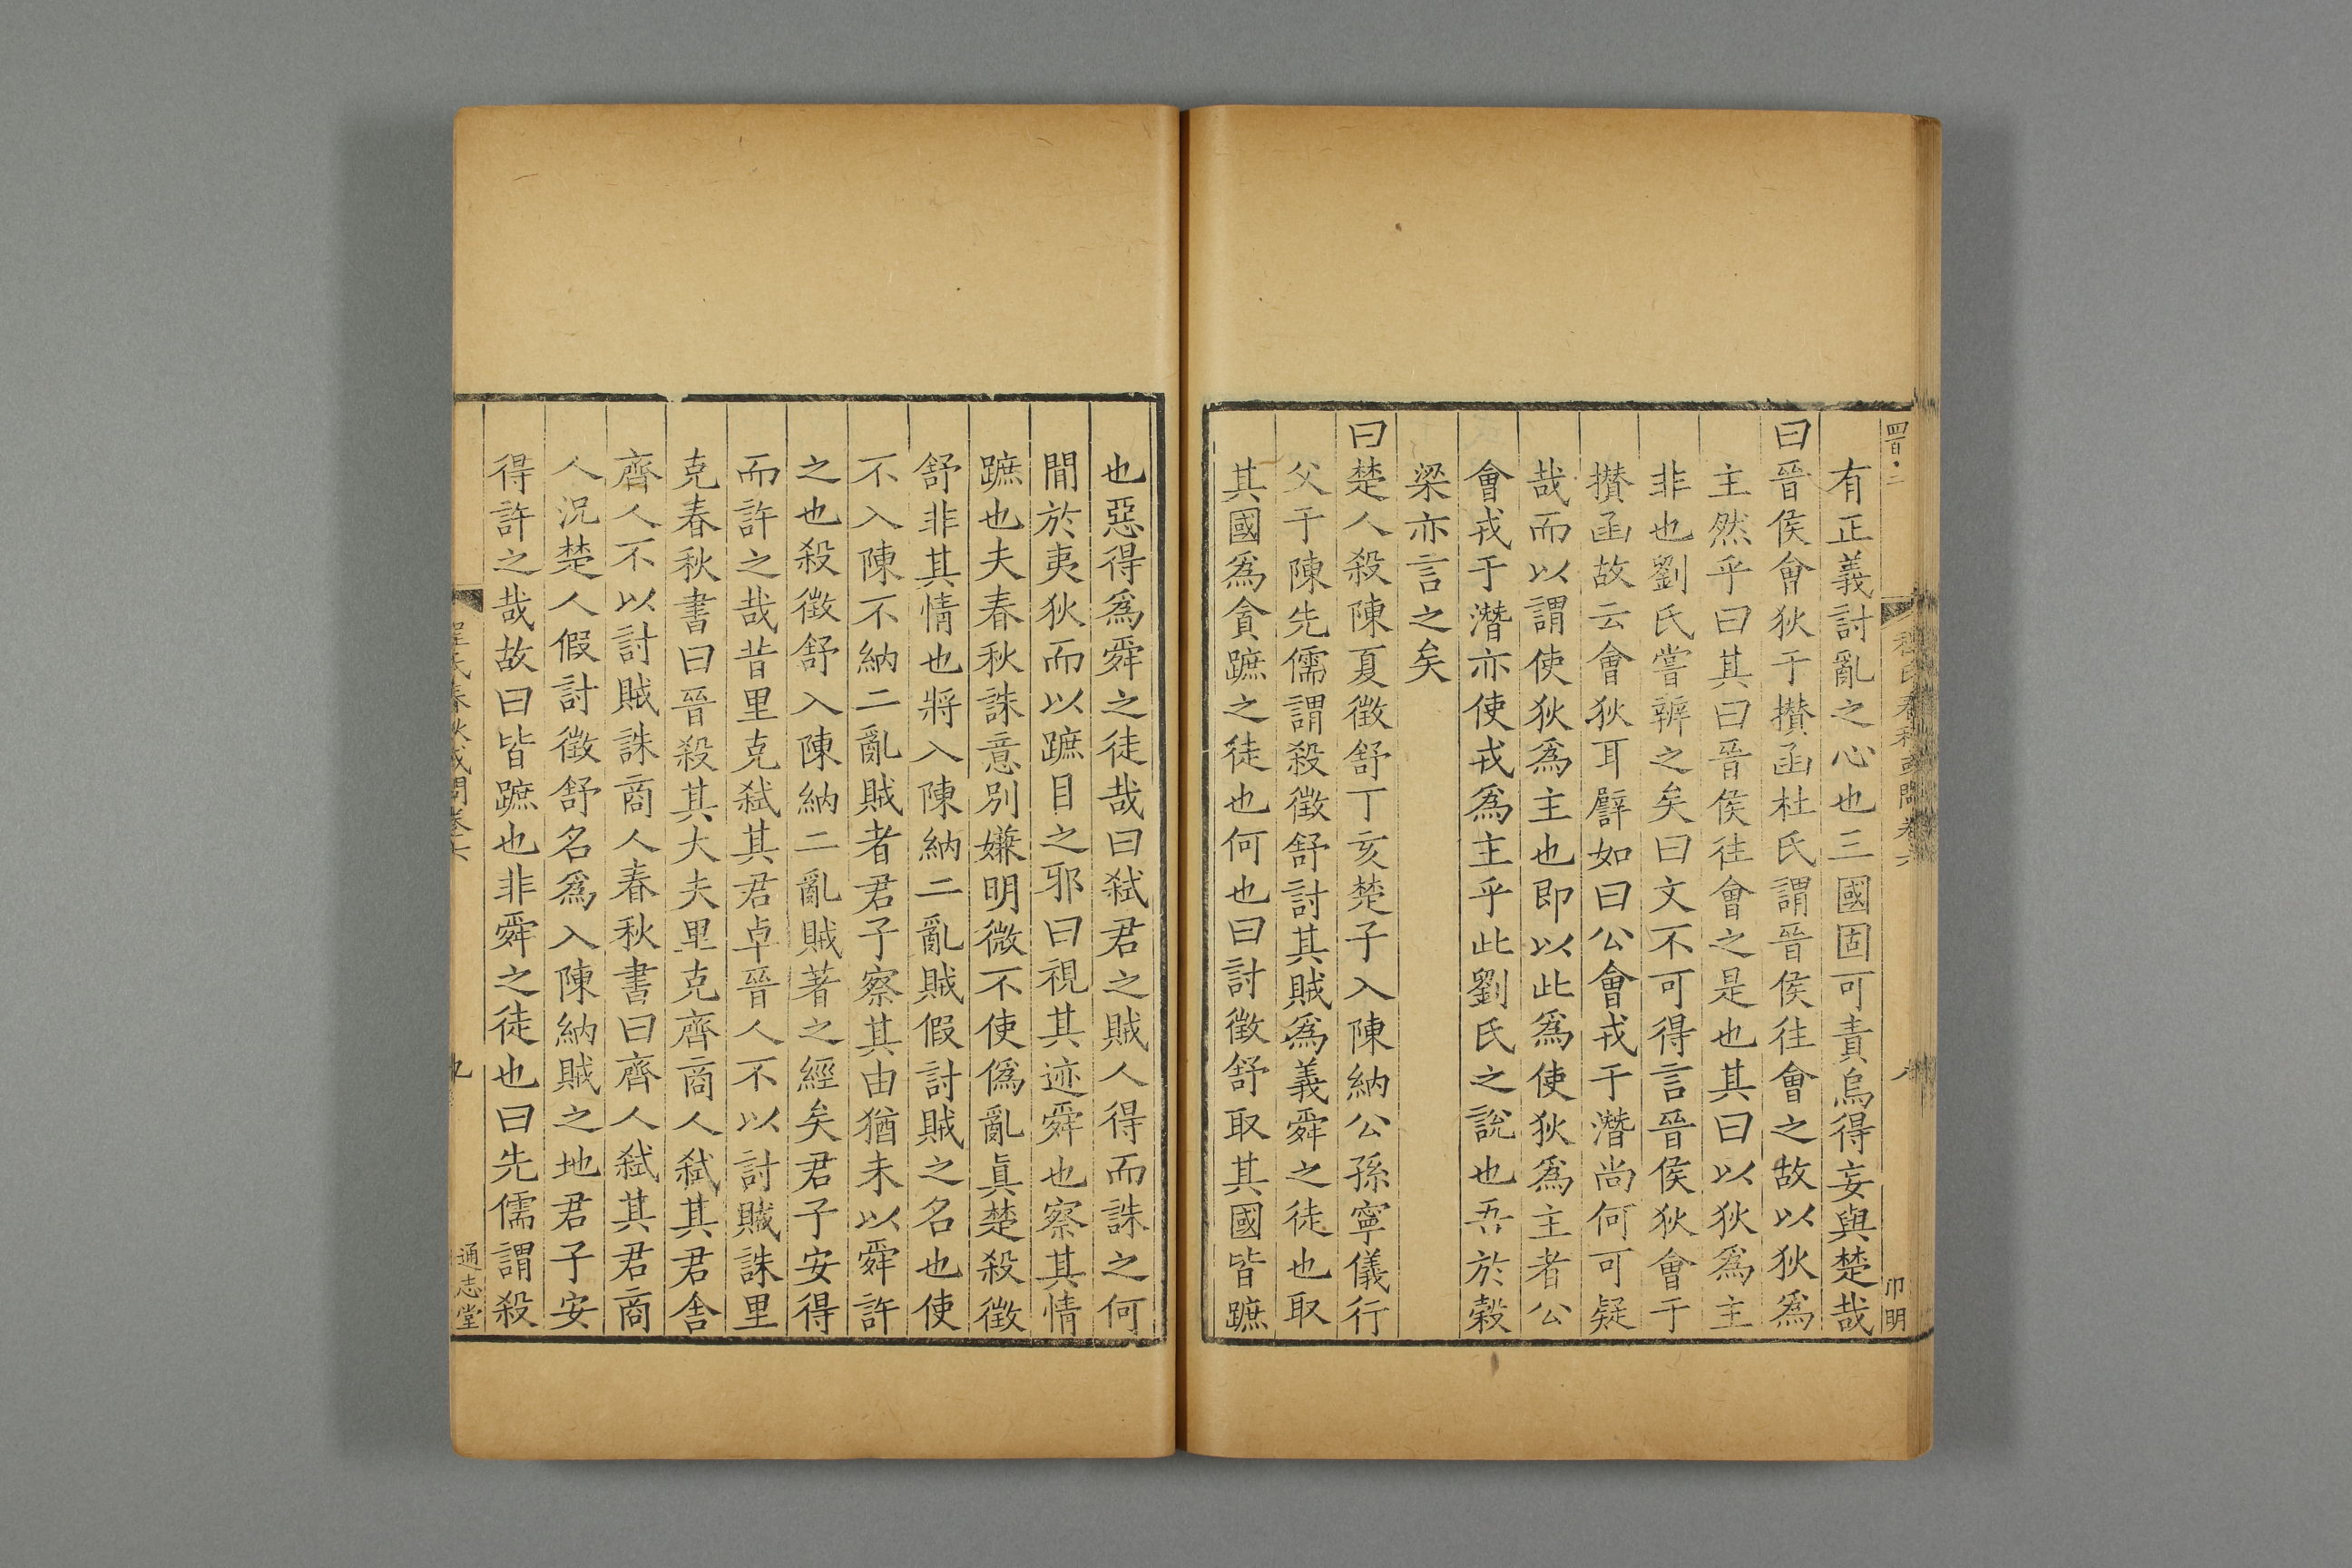 有正義討亂之心也三國固可責烏得妄與楚哉
曰晉侯會狄于攅函杜氏謂晉侯往會之故以狄爲
主然乎曰其曰晉侯往會之是也其曰以狄爲主
非也劉氏嘗辨之矣曰文不可得言晉侯狄會于
攅函故云會狄耳譬如曰公會戎于潛尚何可疑
哉而以謂使狄爲主也即以此爲使狄爲主者公
會戎于潛亦使戎爲主乎此劉氏之說也吾於榖
梁亦言之矣
曰楚人殺陳夏徵舒丁亥楚子入陳納公孫寧儀行
父于陳先儒謂殺徵舒討其賊爲義舜之徒也取
其國爲貪蹠之徒也何也曰討徵舒取其國皆蹠
也惡得爲舜之徒哉曰弑君之賊人得而誅之何
間於夷狄而以蹠目之邪曰視其迹舜也察其情
蹠也夫春秋誅意别嫌明微不使僞亂眞楚殺徵
舒非其情也將入陳納二亂賊假討賊之名也使
不入陳不納二亂賊者君子察其由猶未以舜許
之也殺徵舒入陳納二亂賊著之經矣君子安得
而許之哉昔里克弑其君卓晉人不以討賊誅里
克春秋書曰晉殺其大夫里克齊商人弑其君舎
齊人不以討賊誅商人春秋書曰齊人弑其君商
人況楚人假討徵舒名爲入陳納賊之地君子安
得許之哉故曰皆蹠也非舜之徒也曰先儒謂殺
程氏春秋或問卷六
通志堂